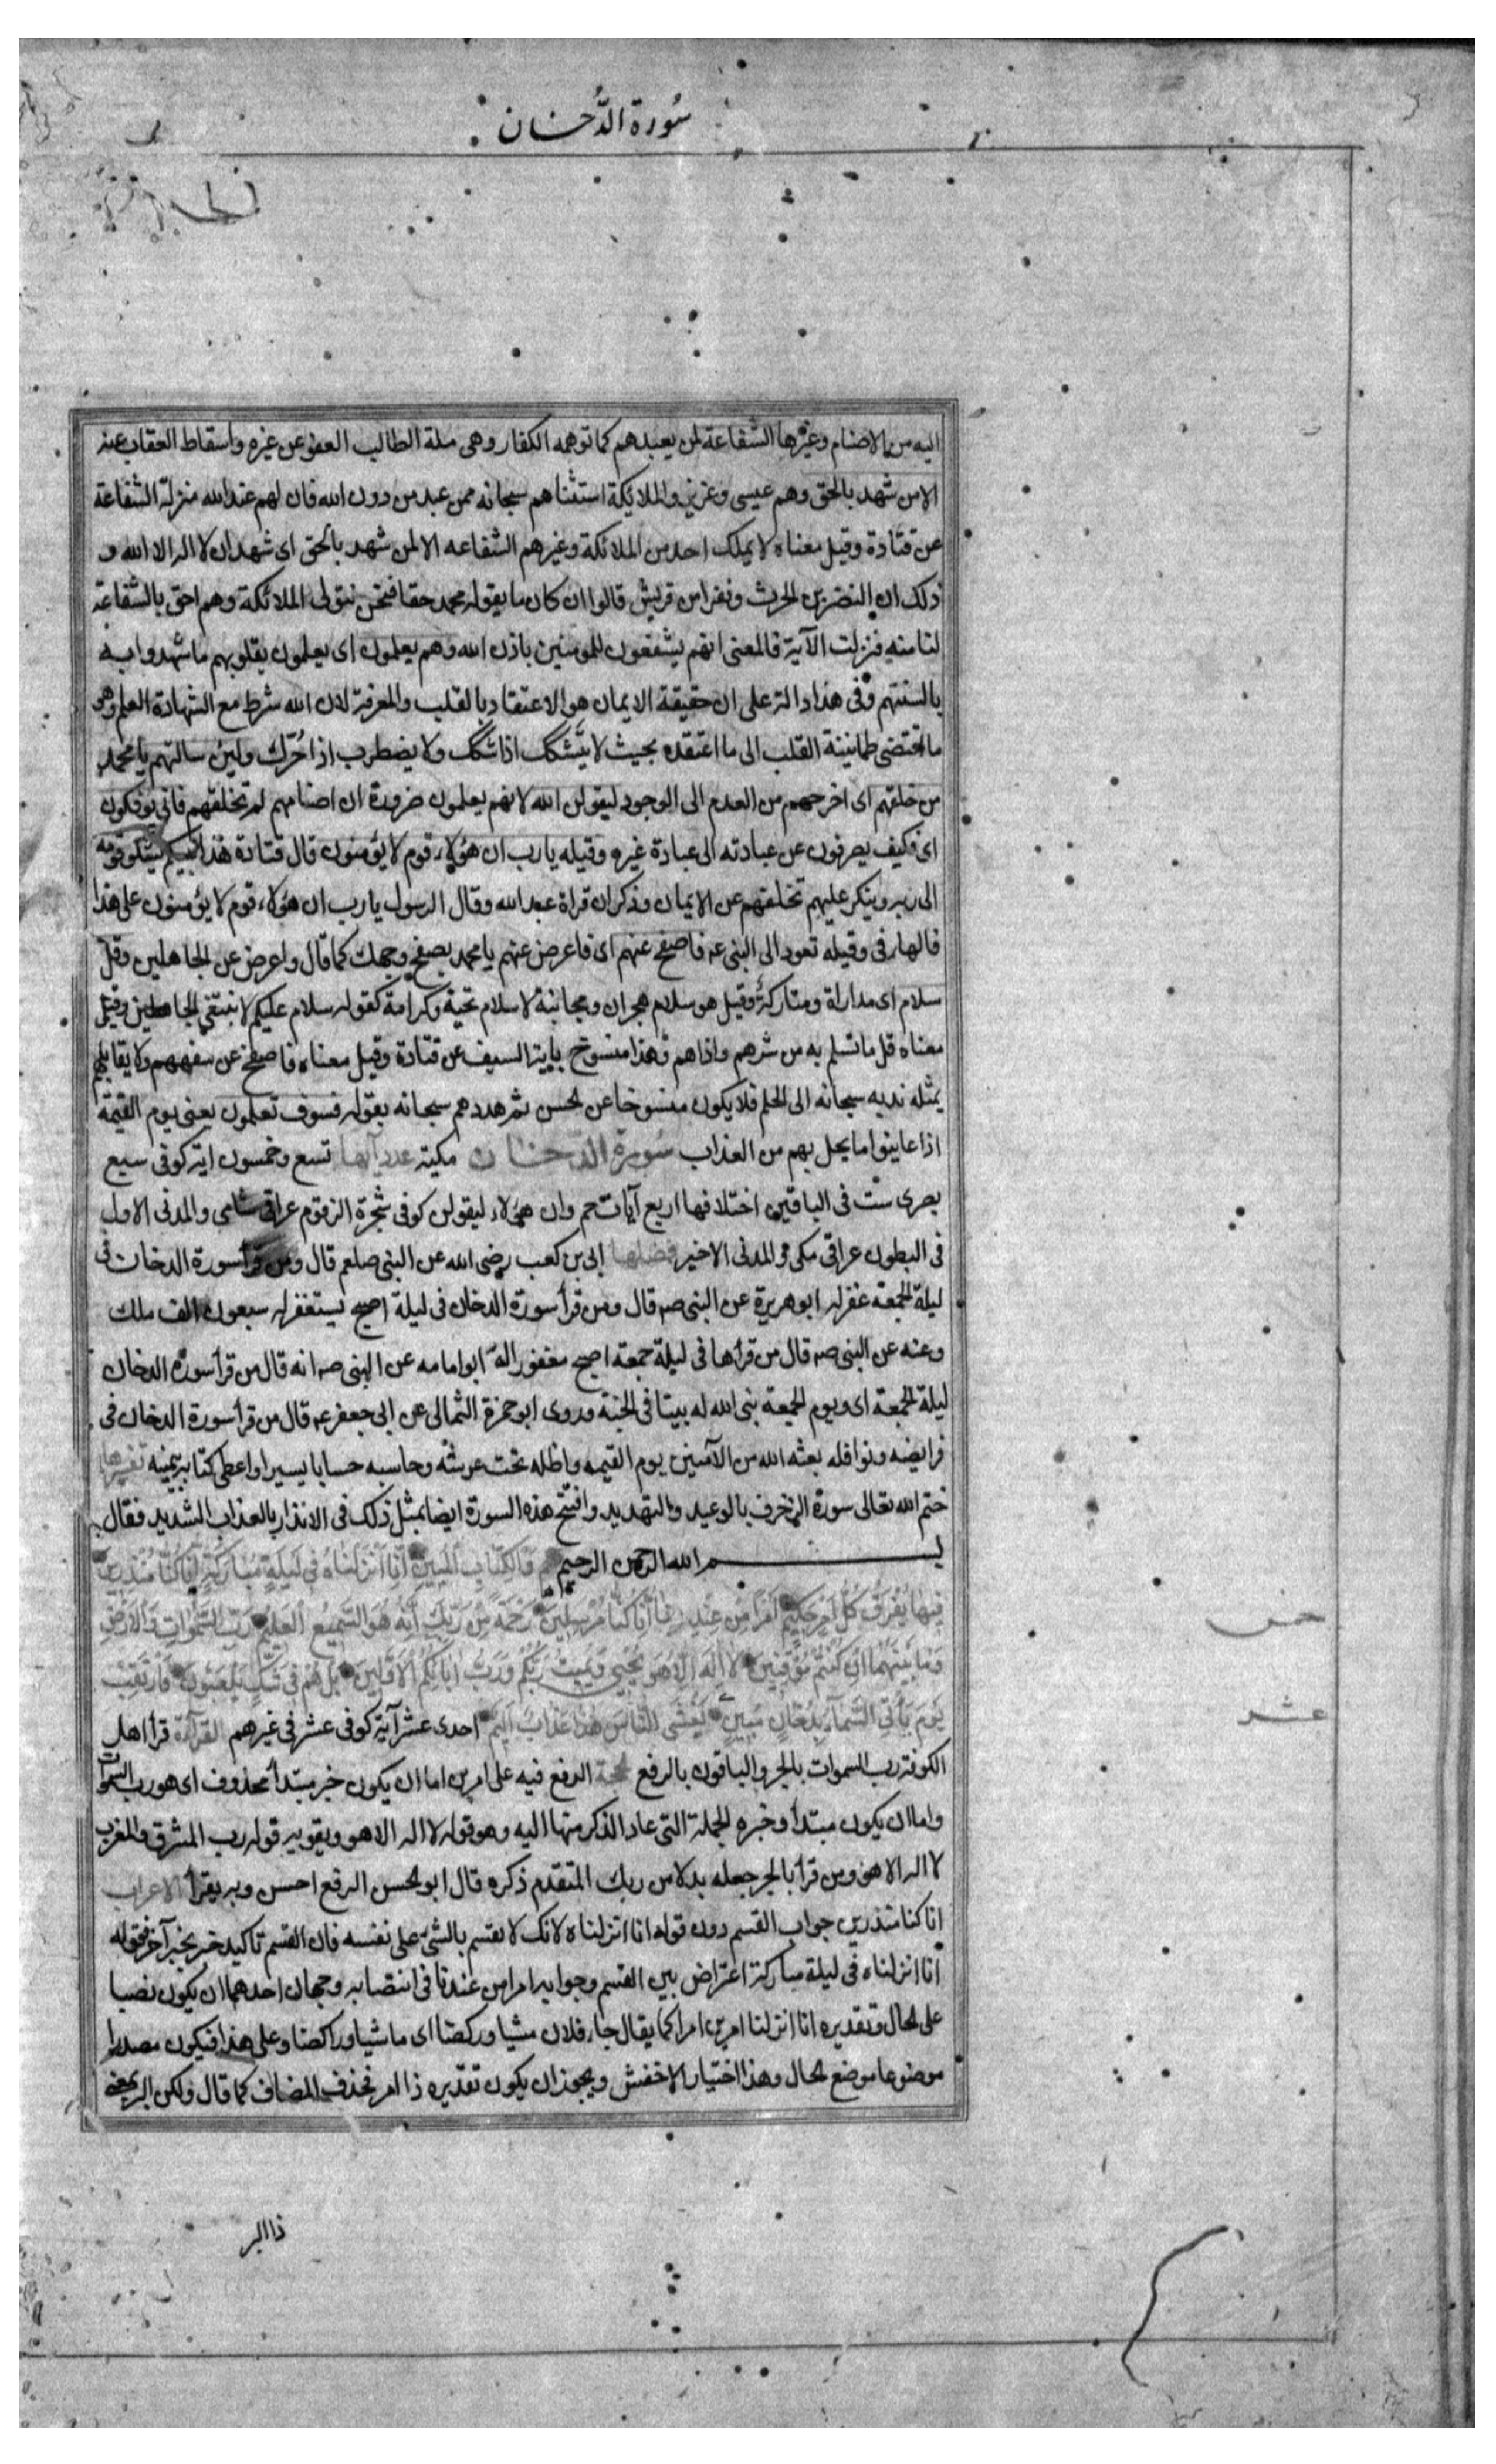 سُورة الدُّخان
اليه من الاصنام وغيرها الشفاعة لمن يعبدهم كما توهمه الكفار وهى مسلة الطالب العفو عن غيره واسقاط العقاب عنه
الا من شهد بالحق وهم عيسى وعزير والملائكة استثناهم سبحانه ممن عبد من دون الله فان لهم عند الله منزلة الشفاعة
عن قتادة وقيل معناه لا يملك احد من الملائكة وغيرهم الشفاعه الا لمن شهد بالحق اى شهد ان لا اله الا الله و
ذلك ان النضر بن الحرث ونفرا من قريش قالوا ان كان ما يقوله محمد حقا فنحن نتولى الملائكة وهم احق بالشفاعة
لنا منه فنزلت الآية فالمعنى انهم يشفعون للمومنين باذن الله وهم يعلمون اى يعلمون بقلوبهم ما شهدوا به
بالسنتهم وفى هذا دالة على ان حقيقة الايمان هو الاعتقاد بالقلب والمعرفة لان الله شرط مع الشهادة العلم وهو
ما اقتضى طمانينة القلب الى ما اعتقده بحيث لا يتشكك اذا شكك ولا يضطرب اذا حُرّك ولين سالتهم يا محمد
من خلقهم اى اخرجهم من العدم الى الوجود ليقولن الله لانهم يعلمون ضرورة ان اصنامهم لم تخلقهم فانى يوفكون
اى فكيف يصرفون عن عبادته الى عبادة غيره وقيله يا رب ان هؤلاء قوم لا يؤمنون قال قتادة هذا نبيكم يشكو قومه
الى ربه وينكر عليهم تخلفهم عن الايمان وذكر ان قراة عبد الله وقال الرسول يا رب ان هؤلاء قوم لا يؤمنون على هذا
فالهاء فى وقيله تعود الى النبى عه فاصفح عنهم اى فاعرض عنهم يا محمد بصفح وجهك كما قال واعرض عن الجاهلين وقل
سلام اى مداراة ومتاركة وقيل هو سلام هجران ومجانبة لا سلام تحية وكرامة كقوله سلام عليكم لا نبتغى الجاهلين وقيل
معناه قل ما تسلم به من شرهم واذاهم وهذا منسوخ باية السيف عن قتادة وقيل معناه فاصفح عن سفههم ولا يقابلهم
بمثله ندبه سبحانه الى الحلم فلا يكون منسوخا عن الحسن ثم هددهم سبحانه بقوله فسوف تعلمون يعنى يوم القيمة
اذا عاينوا ما يحل بهم من العذاب سورة الدّخان مكية عدد آيها تسع وخمسون اية كوفى سبع
بصرى ست فى الباقين اختلافها اربع آيات حم وان هؤلاء ليقولن كوفى شجرة الزقوم عراقى شامى والمدنى الاول
فى البطون عراقى مكى والمدنى الاخير فضلها ابى بن كعب رضى الله عن النبى صلعم قال ومن قرأ سورة الدخان فى
ليلة الجمعة غفر له ابو هريرة عن النبى صه قال ومن قرأ سورة الدخان فى ليلة اصبح يستغفر له سبعون الف ملك
وعنه عن النبى صه قال من قرأها فى ليلة جمعة اصبح مغفورا له ابو امامه عن النبى صه انه قال من قرأ سورة الدخان
ليلة الجمعة او يوم الجمعة بنى الله له بيتا فى الجنة وروى ابو حمزة الثمالى عن ابى جعفر عه قال من قرأ سورة الدخان فى
فرايضه ونوافله بعثه الله من الآمنين يوم القيمه واظله تحت عرشه وحاسبه حسابا يسيرا واعطى كتابه بيمينه تفسيرها
ختم الله تعالى سورة الزخرف بالوعيد والتهديد وافتتح هذه السورة ايضا بمثل ذلك فى الانذار بالعذاب الشديد فقال
بسم الله الرحمن الرحيم حم وَالكِتَابِ المُبِينِ اِنّا اَنْزَلناهُ فى لَيلَةٍ مُبَارَكَةٍ اِنّا كُنّا مُنذِرينَ
فِيهَا يُفرَقُ كُلُّ اَمرٍ حَكِيمٍ اَمرًا مِن عِندِنا اِنّا كُنّا مُرسِلِينَ رَحمَةً مِن رَبِّكَ اِنّه هُوَ السَّميعُ العَليمُ رَبِّ السَّمواتِ وَالاَرضِ
وَمَا بَينَهُمَا اِن كُنتُم مُوقِنِينَ لا اِلهَ اِلّا هُوَ يُحيِى وَيُمِيتُ رَبُّكُم وَرَبُّ ابائِكُمُ الاَوَّلِينَ بَل هُم فى شَكٍّ يَلعَبُونَ فَارتَقِب
يَومَ تَأتِى السَّماءُ بِدُخَانٍ مُبِينٍ يَغشَى النّاسَ هذا عَذَابٌ اَليم احدى عشر آية كوفى عشر فى غيرهم القراءة قرأ اهل
الكوفة رب السموات بالجر والباقون بالرفع الحجة الرفع فيه على امرين اما ان يكون خبر مبتدأ محذوف اى هو رب السموات
واما ان يكون مبتدأ وخبره الجملة التى عاد الذكر منها اليه وهو قوله لا اله الا هو ويقويه قوله رب المشرق والمغرب
لا اله الا هو ومن قرأ بالجر جعله بدلا من ربك المتقدم ذكره قال ابو الحسن الرفع احسن وبه يقرأ الاعراب
انا كنا منذرين جواب القسم دون قوله انا انزلناه لانك لا تقسم بالشئ على نفسه فان القسم تاكيد خبر بخبر آخر فقوله
انا انزلناه فى ليلة مباركة اعتراض بين القسم وجوابه امرا من عندنا فى انتصابه وجهان احدهما ان يكون نصبا
على الحال وتقديره انا انزلنا امرين امرا كما يقال جاء فلان مشيا وركضا اى ماشيا وراكضا وعلى هذا فيكون مصدرا
موضوعا موضع الحال وهذا اختيار الاخفش ويجوز ان يكون تقديره ذا امر فحذف المضاف كما قال ولكن البر بمعنى
خمس
عشر
ذا البر